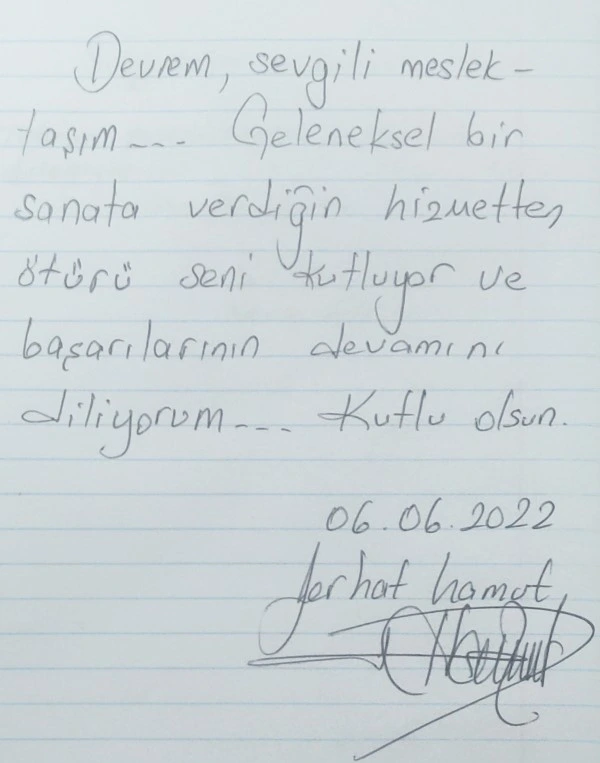 Devrem, sevgili meslek-
taşım--- Geleneksel bir
sanata verdiğin hizmetten
ötürü seni kutluyor ve
başarılarının devamını
diliyorum--- Kutlu olsun.
06.06.2022
Ferhat hamut